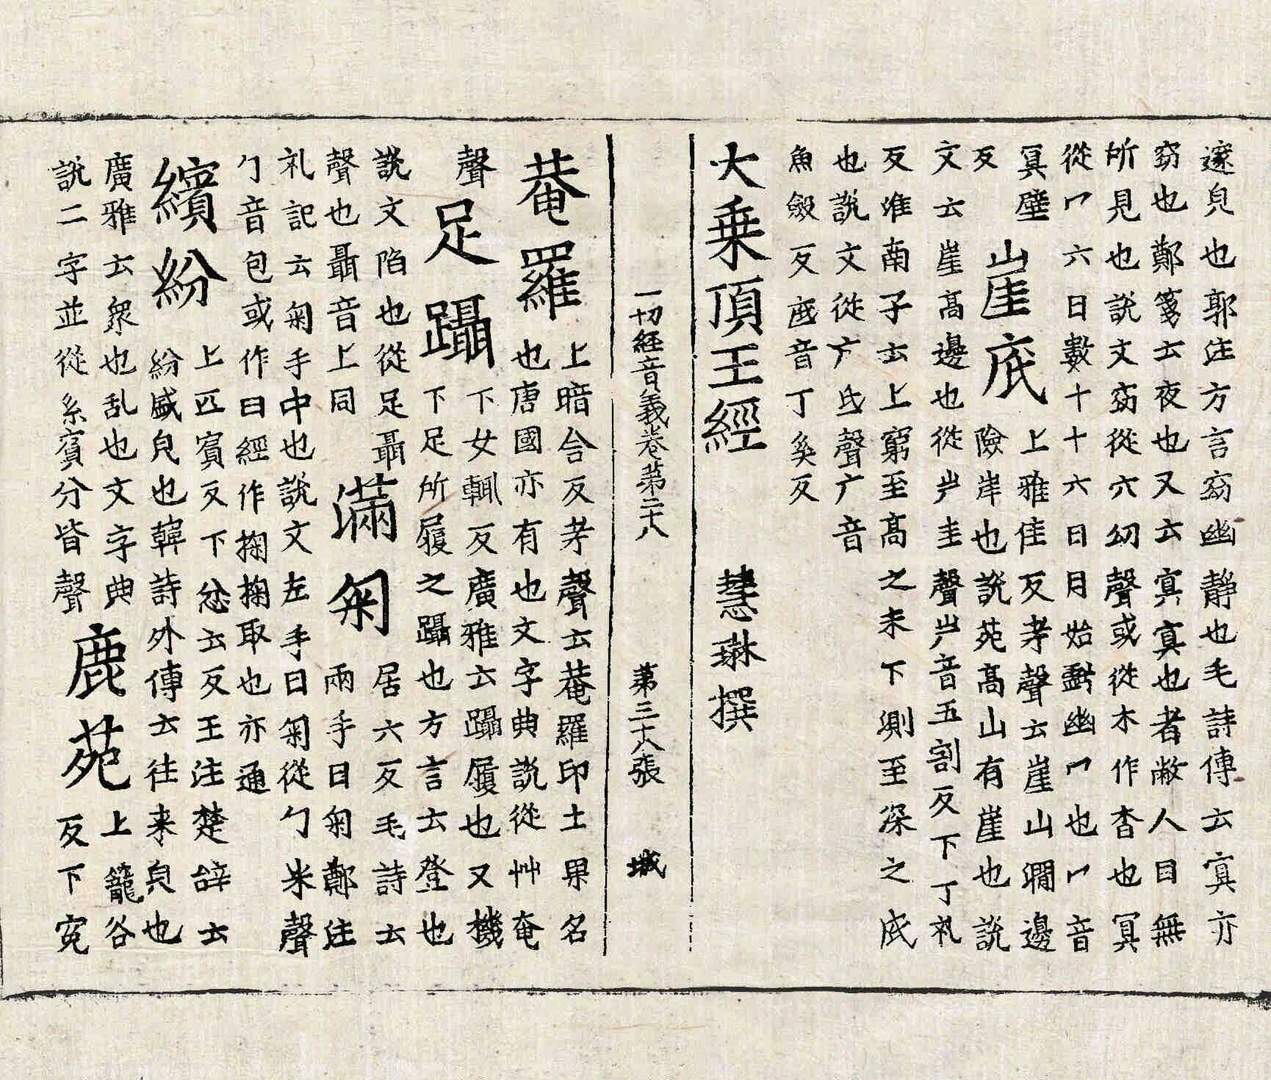 邃皃也郭注方言窈幽静也毛詩傳云㝠亦
窈也鄭箋云夜也又云㝠㝠也者敝人目無
所見也說文窈從穴幼聲或從木作杳也冥
從冖六日數十十六日月始虧幽冖也冖音
覓壁反
山崖底
上雅佳反孝聲云崖山澗邊
險岸也說苑高山有崖也說
文云崖高邊也從屵圭聲屵音五割反下丁礼
反淮南子云上窮至高之末下測至深之底
也說文從广氐聲广音
魚儉反氐音丁奚反
大乘頂王經 慧琳撰
一切經音義卷第二十八 第三十八張 城
菴羅
上暗含反孝聲云菴羅印土果名
也唐國亦有也文字典說從艸奄
聲
足躡
下女輒反廣雅云躡履也又機
下足所履之躡也方言云登也
說文陷也從足聶
聲也聶音上同
滿匊
居六反毛詩云
兩手曰匊鄭注
礼記云匊手中也說文左手曰匊從勹米聲
勹音包或作臼經作掬掬取也亦通
繽紛
上匹賓反下忿云反王注楚辞云
紛盛皃也韓詩外傳云往来皃也
廣雅云衆也乱也文字典
說二字並從糸賓分皆聲
鹿苑
上籠谷
反下寃